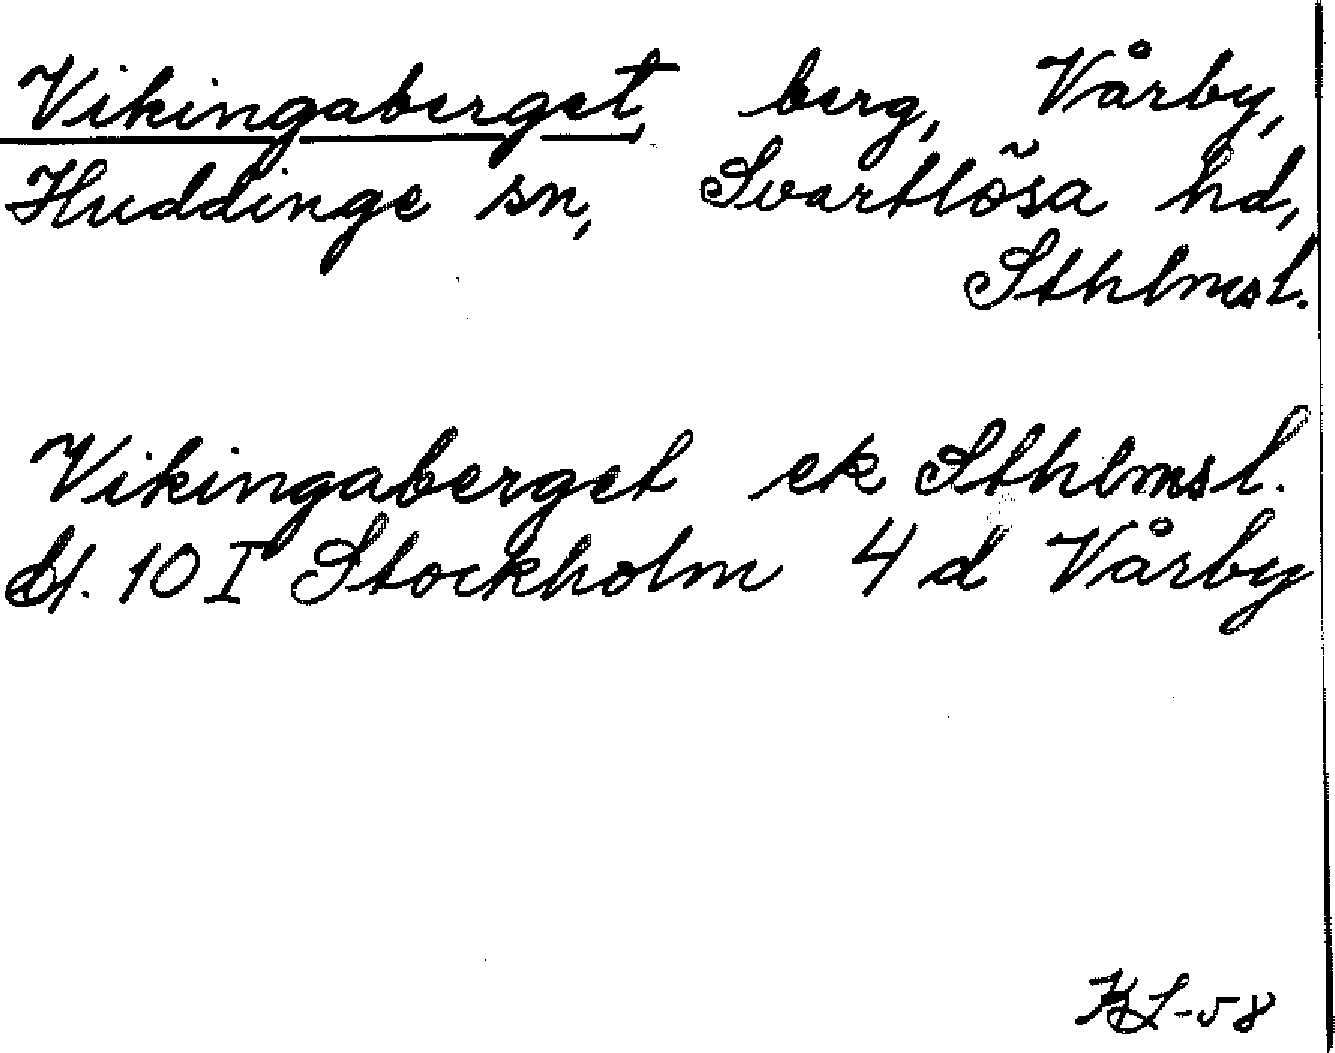 Vikingaberget, berg, Vårby,
Huddinge sn, Svartlösa hd,
Sthlmsl.
Vikingaberget ek Sthlmsl.
bl. 10 I Stockholm 4 d Vårby
KL-58